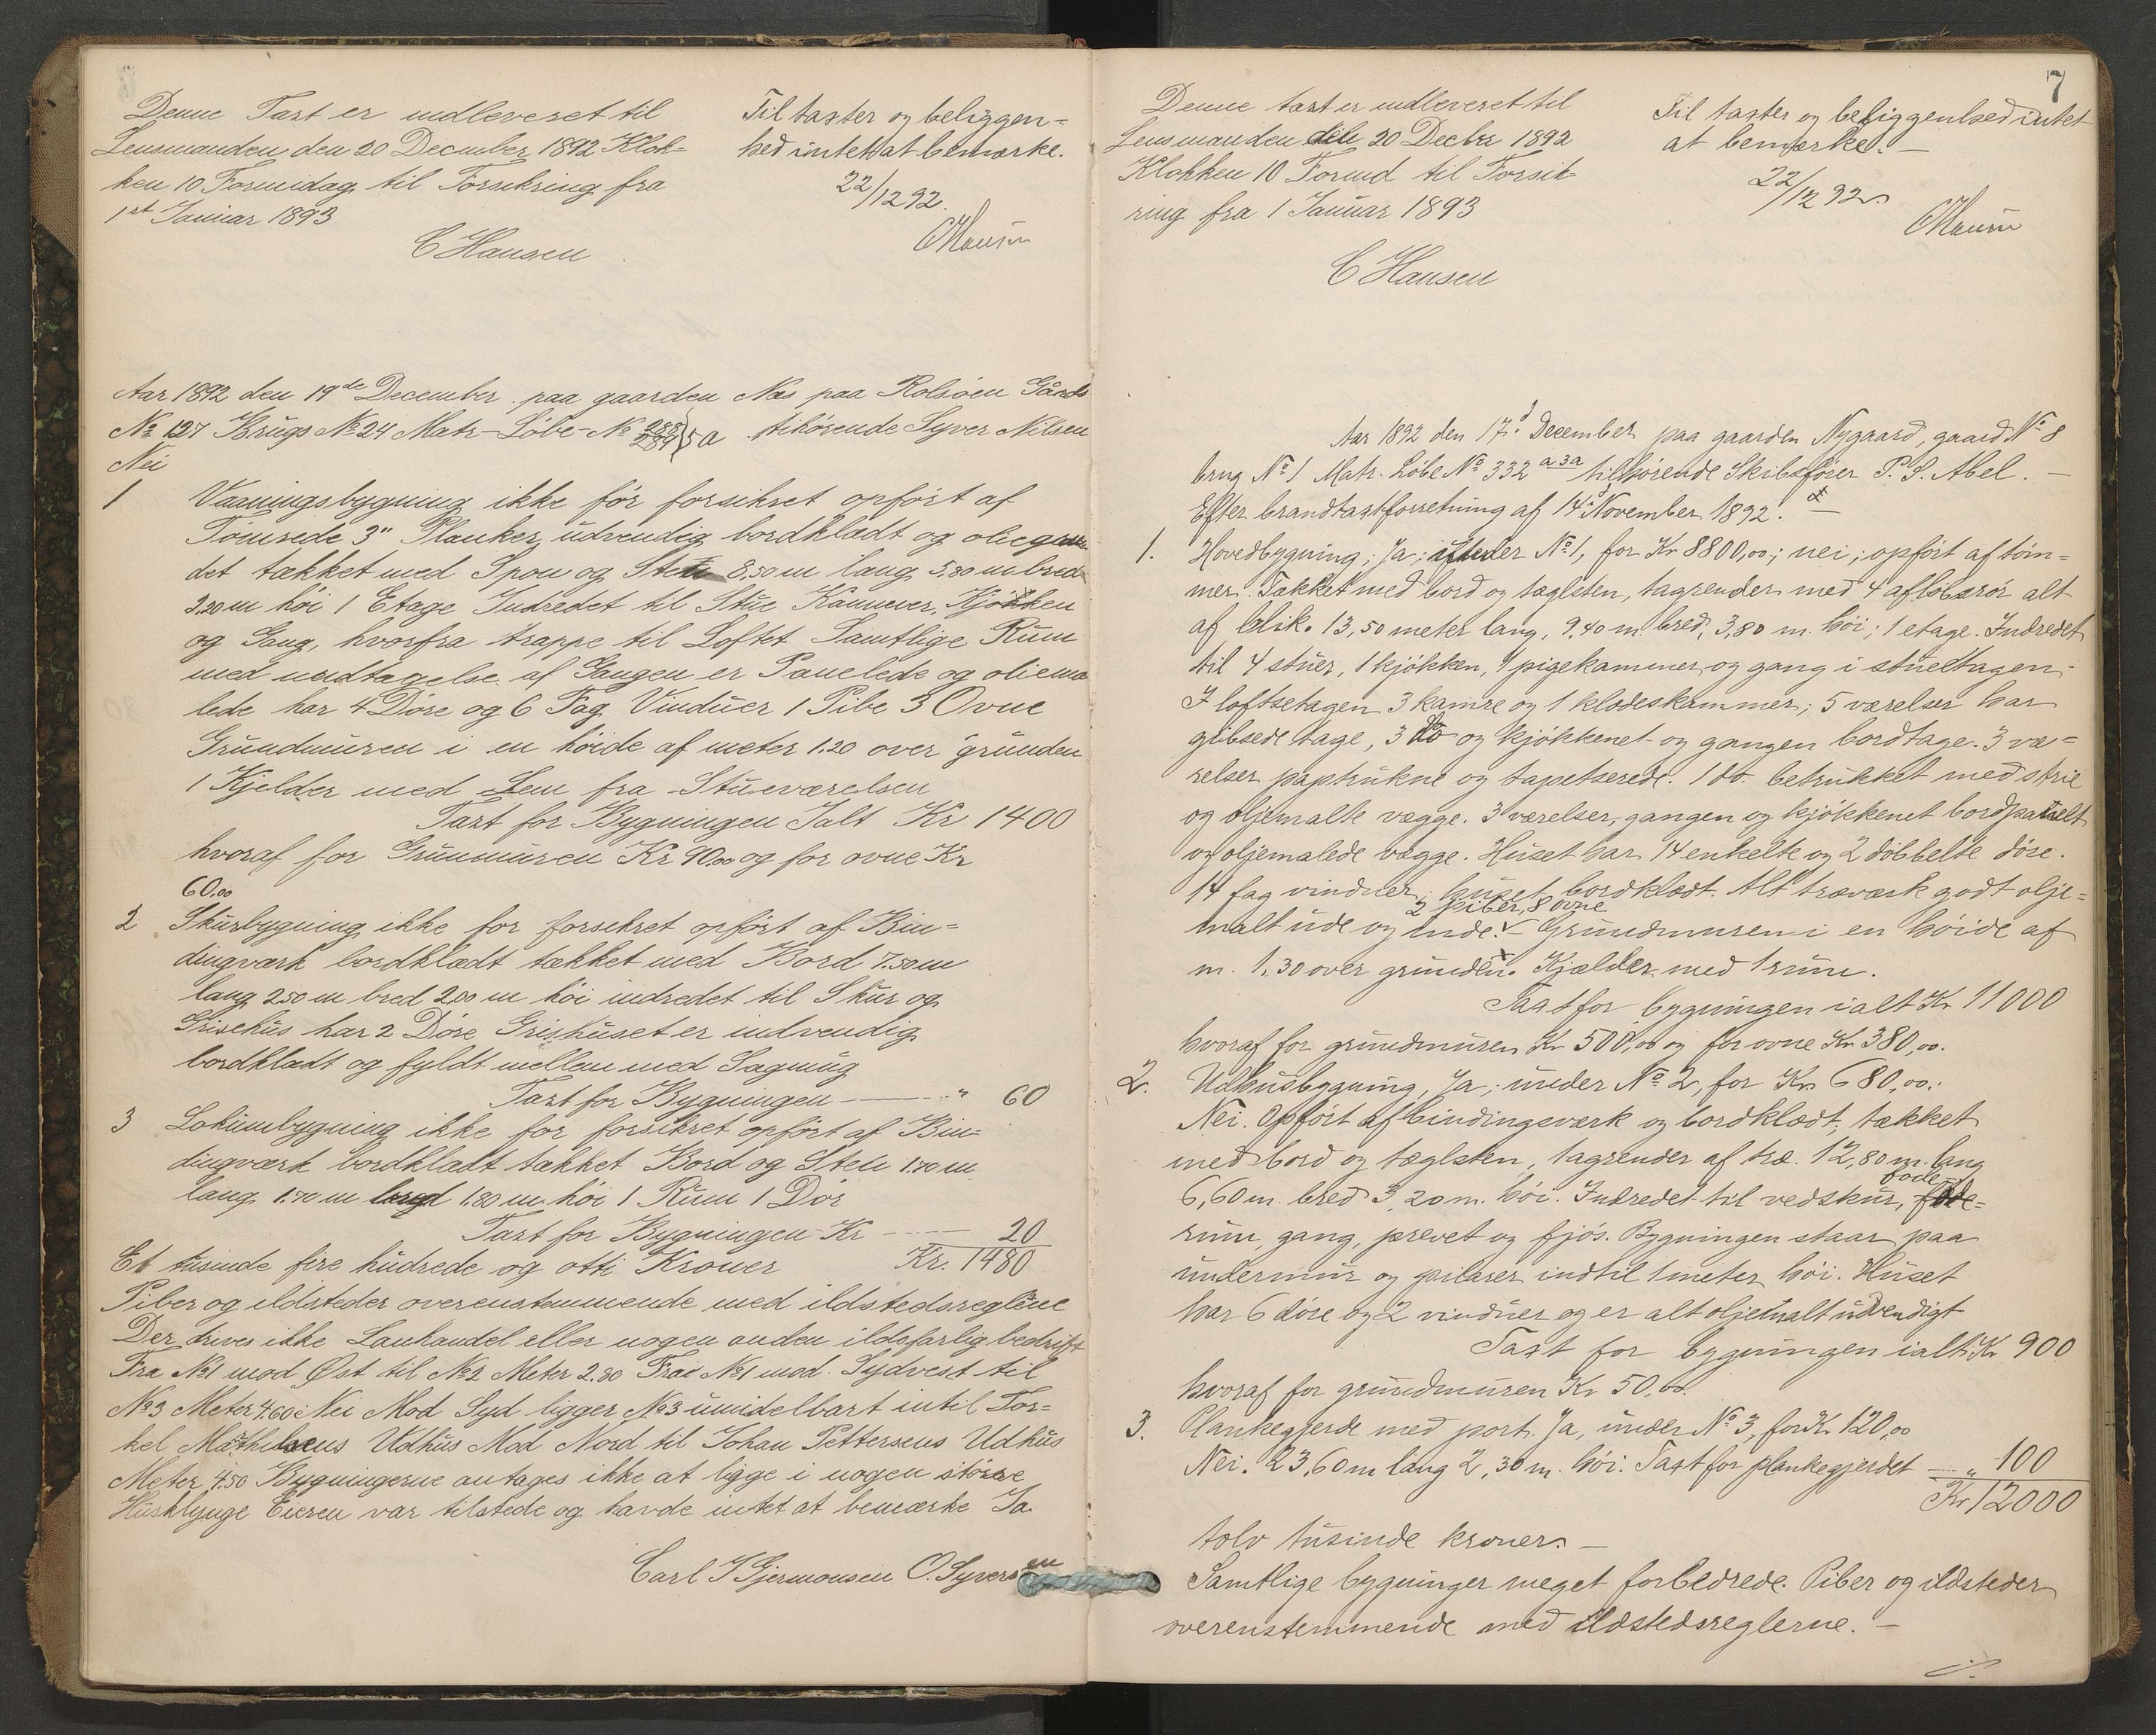 Denne Taxt er indleveret til
Lensmanden den 20 December 1892 Klok-
ken 10 Formidag til Forsikring fra
1st Januar 1893
C Hansen
Til taxter og beliggen-
hed intet at bemærke.
22/12 92.
Aar 1892 den 19de December paa gaarden Næs paa Rolsøen Gaards
No 127 Brugs No 24 Matr-Løbe-No 288/289 5a tihørende Syver Nilsen
Nei
1 Vaaningsbygning ikke før forsikret opført af
Tømrede 3" Planker udvendig bordklædt og oliegrun
det tækket med Spon og Sten 8,50 m lang 5,80 m bred
2,20 m høi 1 Etage Indredet til Stue Kammer, Kjøkken
og Gang, hvorfra trappe til Loftet Samtlige Rum
med undtagelse af Gangen er Panelede og oliema
lede har 4 Døre og 6 Fag Vinduer 1 Pibe 3 Ovne
Grundmuren i en høide af meter 1.20 over grunden
1 Kjelder med Lem fra Stueværelsen
Taxt for Bygningen Ialt Kr 1400
hvoraf for Grunmuren Kr 90.00 og for ovne Kr
60.00
2 Skurbygning ikke for forsikret opført af Bin=
dingværk bordklædt tækket med Bord 7.50 m
lang 2.50 m bred 2.00 m høi indredet til Skur og
Grisehus har 2 Døre Grishuset er indvendig
bordklædt og fyldt mellem med Sagmug
Taxt for Bygningen — " 60
3 Lokumbygning ikke for forsikret opført af Bin=
dingværk bordklædt tækket Bord og Sten 1.70 m
lang 1.70 m bred 1.80 m høi 1 Rum 1 Dør
Taxt for Bygningen Kr — 20
Et tusinde fire hudrede og otti Kroner Kr. 1480
Piber og ildsteder overenstemmende med ildstedsreglene
Der drives ikke Lanhandel eller nogen anden ildsfarlig bedrift
Fra No1 mod Øst til No2 Meter 2.80 Fra No1 mod Sydvest til
No3 Meter 4.60 Nei Mod Syd ligger No3 umidelbart intil Tor=
kel Mathilsens Udhus Mod Nord til Johan Pettersens Udhus
Meter 4.50 Bygningerne antages ikke at ligge i nogen større
Husklynge Eieren var tilstede og havde intet at bemærke Ja
Carl J Gjermonsen O. Syversen
7
Denne taxt er indleveret til
Lensmanden den 20 Decbr 1892
Klokken 10 Formd til Forsik-
ring fra 1 Januar 1893
C Hansen
Til taxter og beliggenhed intet
at bemærke. —
22/12 92
Aar 1892 den 17d December paa gaarden Nygaard, gaard No 8
brug No 1 Matr. Løbe No 332 a 3a tilhørende Skibsfører P. S. Abel. —
Efter brandtaxtforretning af 14d November 1892.
1. Hovedbygning; Ja; under No 1, for Kr 8800,00; nei; opført af tøm=
mer. Tækket med bord og tæglsten, tagrender med 4 afløbsrør alt
af blik. 13,50 meter lang, 9,40 m. bred, 3,80 m. høi; 1 etage. Indredet
til 4 stuer, 1 kjøkken, 1 pigekammer og gang i stueetagen.
I loftsetagen 3 kamre og 1 klædeskammer; 5 værelser har
gibsede tage, 3 do og kjøkkenet og gangen bordtage. 3 væ=
relser paptrukne og tapetserede. 1 do. betrukket med strie
og oljemalte vægge. 3 værelser, gangen og kjøkkenet bordpanelt
og oljemalede vægge. Huset har 14 enkelte og 2 dobbelte døre.
14 fag vinduer, huset bordklædt. Alt træværk godt olje=
2 piber, 8 ovne
malt ude og inde. — Grundmuren i en høide af
m. 1,30 over grunden. Kjælder med 1 rum.
Taxt for bygningen ialt Kr 11000
hvoraf for grundmuren Kr 500,00 og for ovne Kr 380,00.
2. Udhusbygning, Ja, under No 2, for Kr 680,00.
Nei. Opført af bindingsværk og bordklædt, tækket
med bord og tæglsten, tagrender af træ. 12,80 m. lang
6,60 m. bred 3,20 m. høi. Indredet til vedskur, foder=
rum, gang, prevet og fjøs. Bygningen staar paa
undermur og pilarer indtil 1 meter høi. Huset
har 6 døre og 2 vinduer og er alt oljemalt udvendigt
Taxt for bygningen ialt Kr 900
hvoraf for grundmuren Kr 50,00.
3. Plankegjerde med port. Ja, under No 3, for Kr. 120,00
Nei. 23,60 m lang 2,30 m. høi. Taxt for plankegjerdet — " 100
Kr 12000
tolv tusinde kroner. —
Samtlige bygninger meget forbedrede. Piber og ildsteder
overenstemmende med ildstedsreglerne. —